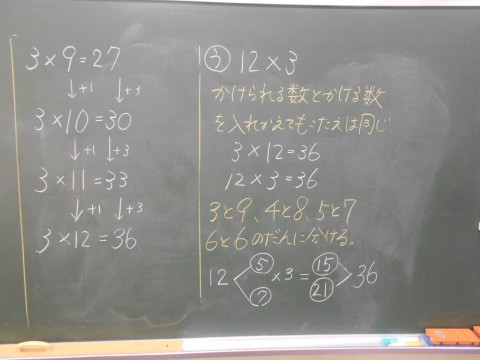 3×9=27
↓+1 ↓+3
3×10=30
↓+1 ↓+3
3×11=33
↓+1 ↓+3
3×12=36
う 12×3
かけられる数とかける数
を入れかえてもこたえは同じ
3×12=36
12×3=36
3と9、4と8、5と7
6と6のだんに分ける。
12<5 7×3=15 21>36